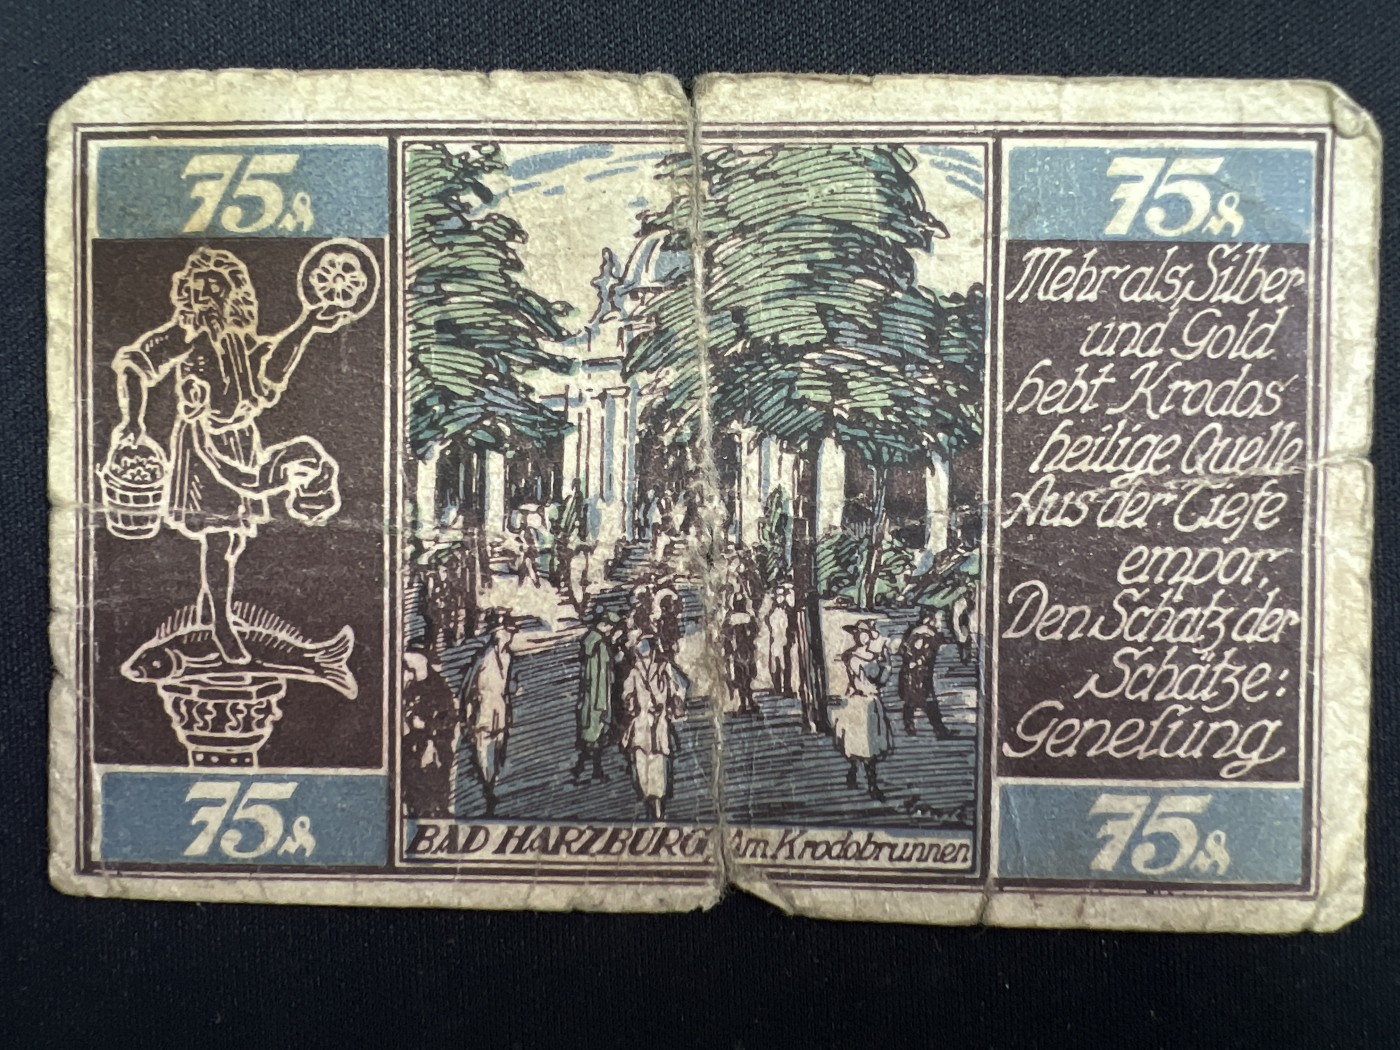 75₰
75₰
BAD HARZBURG. Am Krodobrunnen
75₰
Mehr als Silber
und Gold
hebt Krodos
heilige Quelle
Aus der Tiefe
empor,
Den Schatz der
Schätze:
Geneſung
75₰